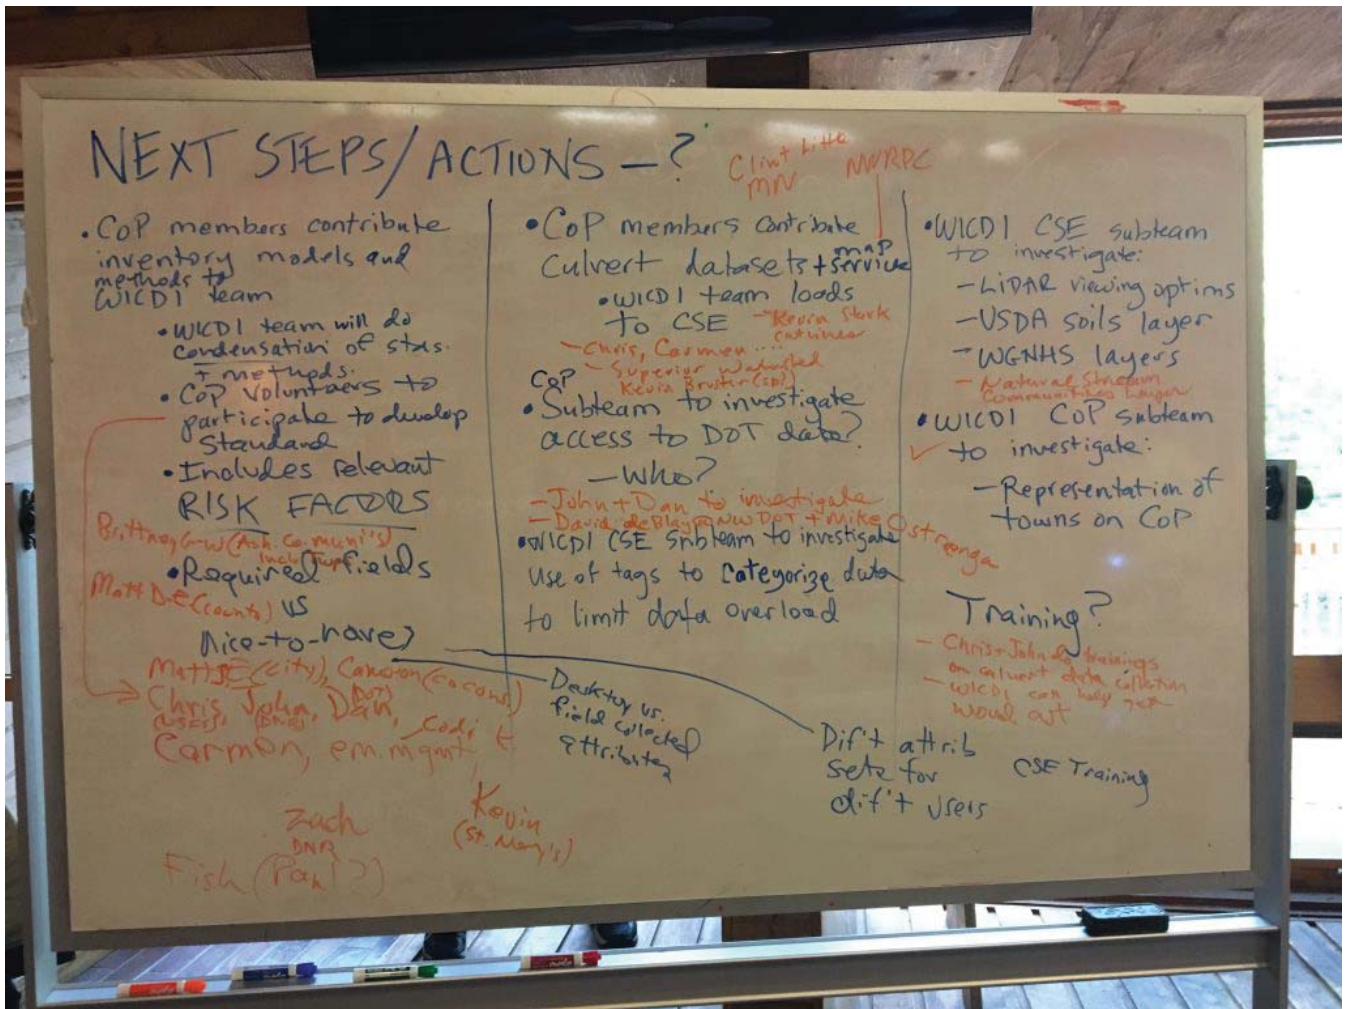 NEXT STEPS/ACTIONS - ?
• CoP members contribute
inventory models and
methods to
WICDI team
• WICDI team will do
condensation of stds.
+ methods.
• CoP Volunteers to
participate to develop
Standard
• Includes relevant
RISK FACTORS
Brittney G-W (Ash. Co. muni's)
incl. twp
• Required fields
Matt DE (county) vs
nice-to-have?
Matt SE (city), Cameron (co cons)
Chris, John, Dan,
(USFS) (DNR) (DOT)
Codi
Carmen, em. mgmt,
Zach
DNR
Fish (Paul?)
Kevin
(St. Mary's)
Desktop vs.
field collected
attributes
Clint Little
MN
NWRPC
• CoP members contribute
culvert datasets + map
service
• WICDI team loads
to CSE
- Kevin Stark
- Chris, Carmen ....
- Superior Watershed
Kevin Bruster (sp?)
CoP
• Subteam to investigate
access to DOT data?
- Who?
- John + Dan to investigate
- David de Blaye NW DOT + Mike Ostrenga
• WICDI CSE Subteam to investigate
use of tags to categorize data
to limit data overload
Dif't attrib
sets for
dif't users
• WICDI CSE subteam
to investigate:
- LiDAR viewing options
- USDA soils layer
- WGNHS layers
- Natural Stream
Communities layer
• WICDI CoP subteam
✓ to investigate:
- Representation of
towns on CoP
Training?
- Chris + John do trainings
on culvert data collection
- WICDI can help get
word out
CSE Training